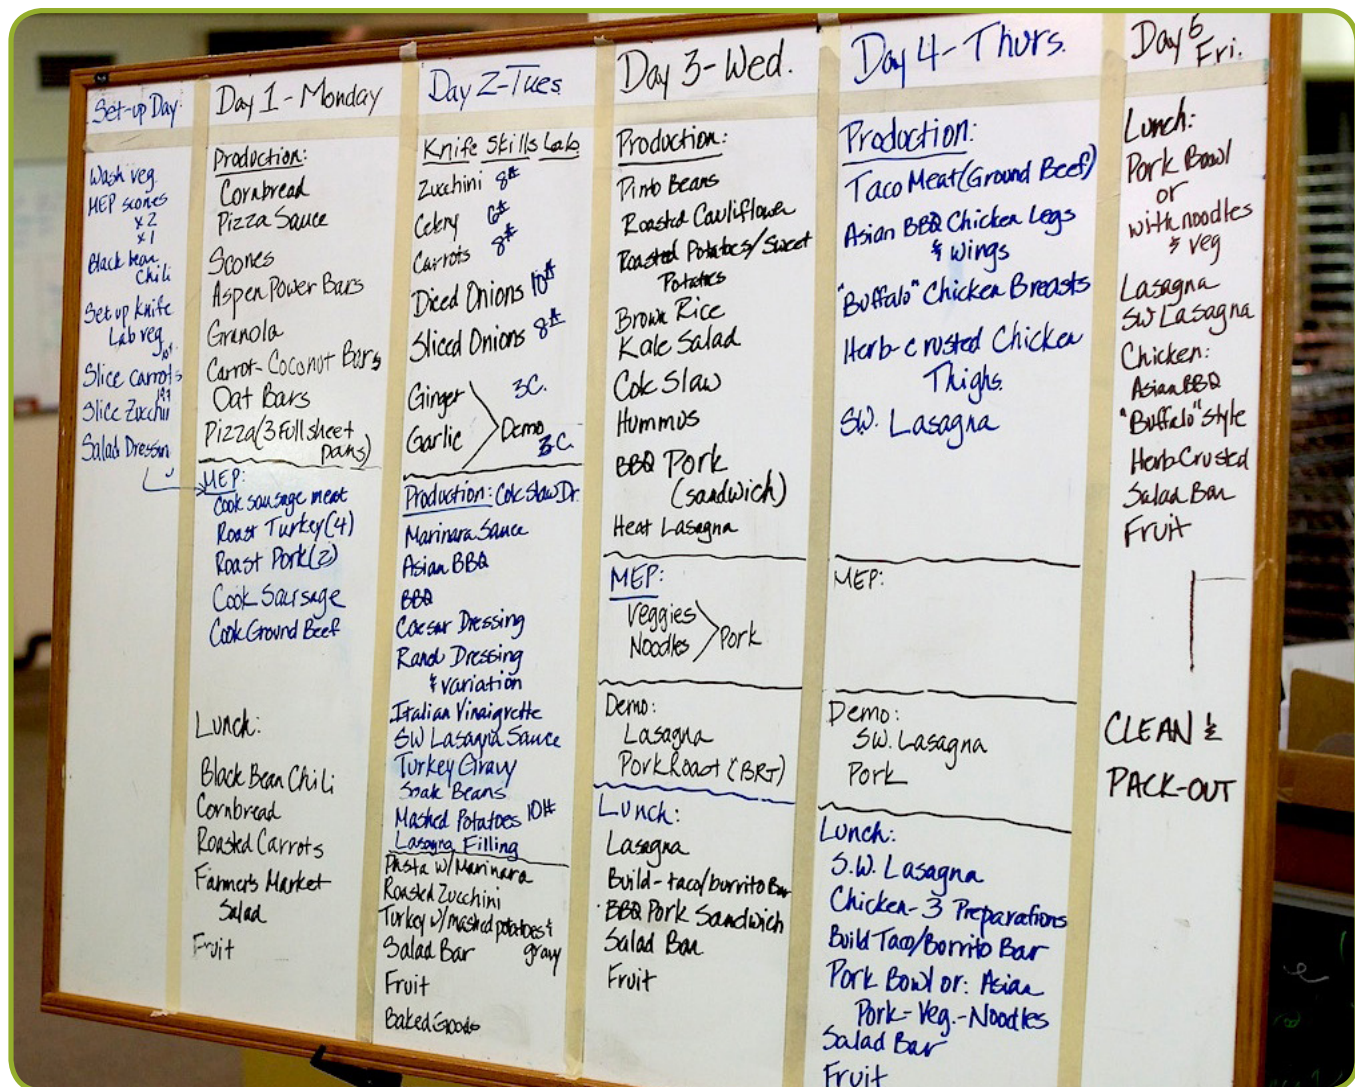 Set-up Day
Wash veg.
MEP scones
x 2
x 1
Black bean
Chili
Set up knife
Lab veg
Slice carrots
Slice Zucchii
Salad Dressin
Day 1 - Monday
Production:
Cornbread
Pizza Sauce
Scones
Aspen Power Bars
Granola
Carrot-Coconut Bars
Oat Bars
Pizza (3 Full sheet
pans)
MEP:
Cook sausage meat
Roast Turkey (4)
Roast Pork (2)
Cook Sausage
Cook Ground Beef
Lunch:
Black Bean Chili
Cornbread
Roasted Carrots
Farmers Market
Salad
Fruit
Day 2-Tues
Knife Skills Lab
Zucchini 8#
Celery 6#
Carrots 8#
Diced Onions 10#
Sliced Onions 8#
Ginger 3C.
Garlic Demo 3C.
Production: Cole Slaw Dr.
Marinara Sauce
Asian BBQ
BBQ
Caesar Dressing
Ranch Dressing
& variation
Italian Vinaigrette
SW Lasagna Sauce
Turkey Gravy
Soak Beans
Mashed Potatoes 10#
Lasagna Filling
Pasta w/Marinara
Roasted Zucchini
Turkey w/mashed potatoes &
gravy
Salad Bar
Fruit
Baked Goods
Day 3-Wed.
Production:
Pinto Beans
Roasted Cauliflower
Roasted Potatoes/Sweet
Potatoes
Brown Rice
Kale Salad
Cole Slaw
Hummus
BBQ Pork
(sandwich)
Heat Lasagna
MEP:
Veggies
Noodles Pork
Demo:
Lasagna
Pork Roast (BRT)
Lunch:
Lasagna
Build-taco/burrito Bar
BBQ Pork Sandwich
Salad Bar
Fruit
Day 4-Thurs.
Production:
Taco Meat (Ground Beef)
Asian BBQ Chicken Legs
& Wings
"Buffalo" Chicken Breasts
Herb-crusted Chicken
Thighs
SW. Lasagna
MEP:
Demo:
SW. Lasagna
Pork
Lunch:
S.W. Lasagna
Chicken-3 Preparations
Build Taco/Borrito Bar
Pork Bowl or: Asian
Pork-Veg.-Noodles
Salad Bar
Fruit
Day 5
Fri.
Lunch:
Pork Bowl
or
with noodles
& veg
Lasagna
SW Lasagna
Chicken:
Asian BBQ
"Buffalo" Style
Herb Crusted
Salad Bar
Fruit
CLEAN &
PACK-OUT